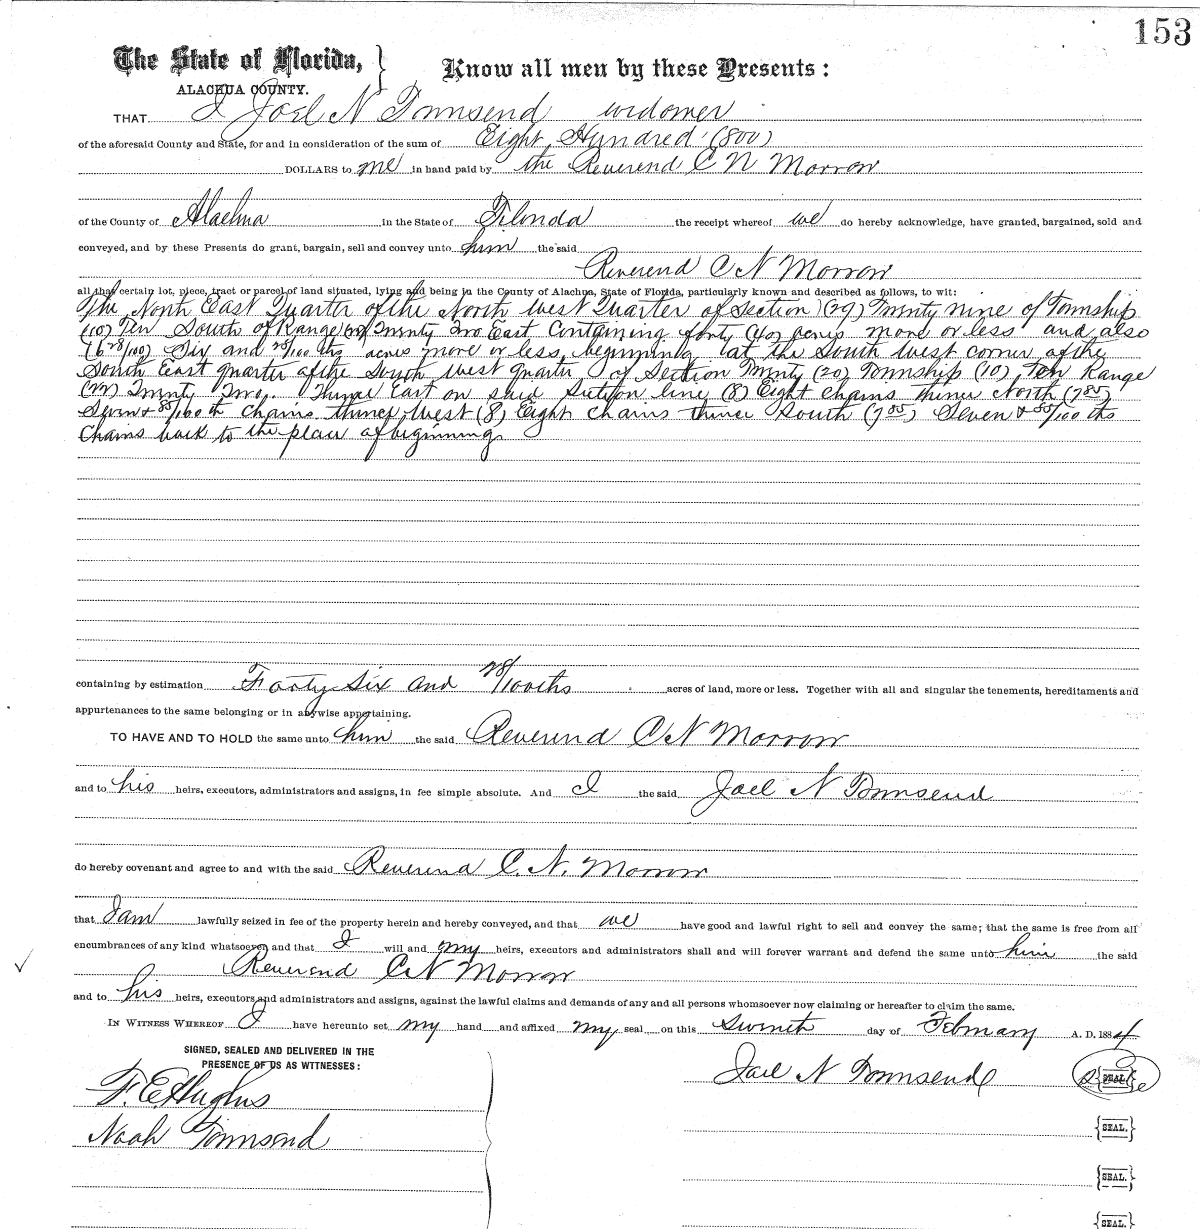 153
The State of Florida, } Know all men by these Presents:
ALACHUA COUNTY.
THAT I Joel N Townsend widower
of the aforesaid County and State, for and in consideration of the sum of Eight Hundred (800)
DOLLARS to me in hand paid by the Reverend C N Morrow
of the County of Alachua in the State of Florida the receipt whereof we do hereby acknowledge, have granted, bargained, sold and
conveyed, and by these Presents do grant, bargain, sell and convey unto him the said
Reverend C N Morrow
all that certain lot, piece, tract or parcel of land situated, lying and being in the County of Alachua, State of Florida, particularly known and described as follows, to wit:
The North East Quarter of the North West Quarter of Section (29) Twenty nine of Township
(10) Ten South of Range (22) Twenty Two East Containing forty (40) acres more or less and also
(6 28/100) Six and 28/100 ths acres more or less, beginning at the South West corner of the
South East quarter of the South West quarter of Section Twenty (20) Township (10) Ten Range
(22) Twenty Two. Thence East on said Section line (8) Eight Chains thence North (7 85)
Seven & 85/100 th Chains thence West (8) Eight Chains thence South (7 85) Seven & 85/100 ths
Chains back to the place of beginning
containing by estimation Forty Six and 28/100ths acres of land, more or less. Together with all and singular the tenements, hereditaments and
appurtenances to the same belonging or in anywise appertaining.
TO HAVE AND TO HOLD the same unto him the said Reverend C N Morrow
and to his heirs, executors, administrators and assigns, in fee simple absolute. And I the said Joel N Townsend
do hereby covenant and agree to and with the said Reverend C. N. Morrow
that I am lawfully seized in fee of the property herein and hereby conveyed, and that we have good and lawful right to sell and convey the same; that the same is free from all
encumbrances of any kind whatsoever, and that I will and my heirs, executors and administrators shall and will forever warrant and defend the same unto him the said
Reverend C N Morrow
and to his heirs, executors and administrators and assigns, against the lawful claims and demands of any and all persons whomsoever now claiming or hereafter to claim the same.
IN WITNESS WHEREOF I have hereunto set my hand and affixed my seal on this Seventh day of February A. D. 1884
SIGNED, SEALED AND DELIVERED IN THE
PRESENCE OF US AS WITNESSES:
Joel N Townsend {SEAL}
F. E. Hughes
{SEAL.}
Noah Townsend
{SEAL.}
{SEAL.}